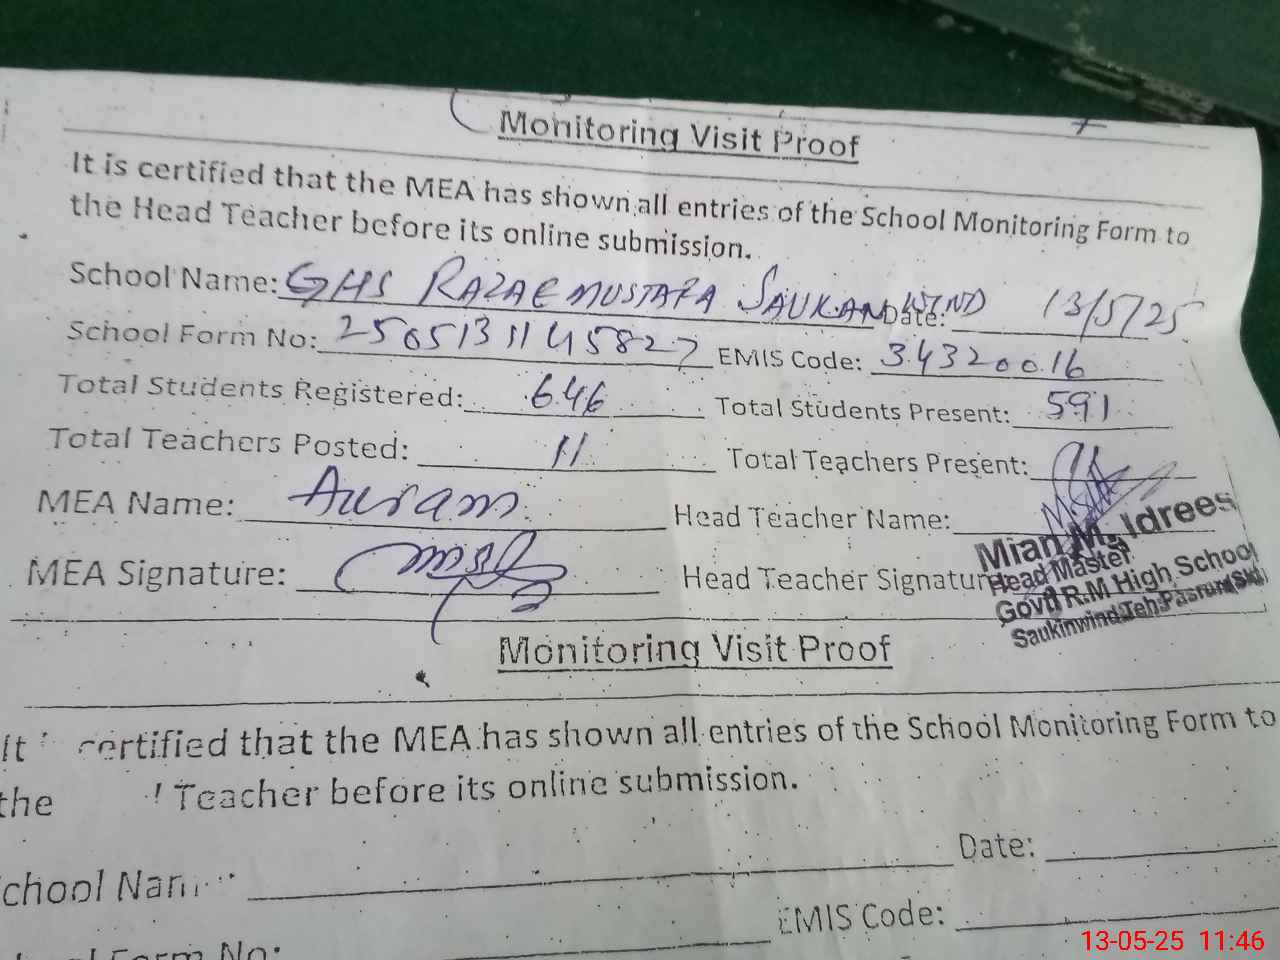 Monitoring Visit Proof
It is certified that the MEA has shown all entries of the School Monitoring Form to
the Head Teacher before its online submission.
School Name: GHS RAZAEMUSTAFA SAUKANWIND Date: 13/5/25
School Form No: 2505131145827 EMIS Code: 34320016
Total Students Registered: 646 Total Students Present: 591
Total Teachers Posted: 11 Total Teachers Present:
MEA Name: Head Teacher Name:
MEA Signature: Head Teacher Signature
Mian M. Idrees
Head Master
Govt R.M High School
Saukinwind Teh Pasrur (Skt)
Monitoring Visit Proof
It certified that the MEA has shown all entries of the School Monitoring Form to
the Teacher before its online submission.
chool Nam Date:
EMIS Code:
Form No:
13-05-25 11:46